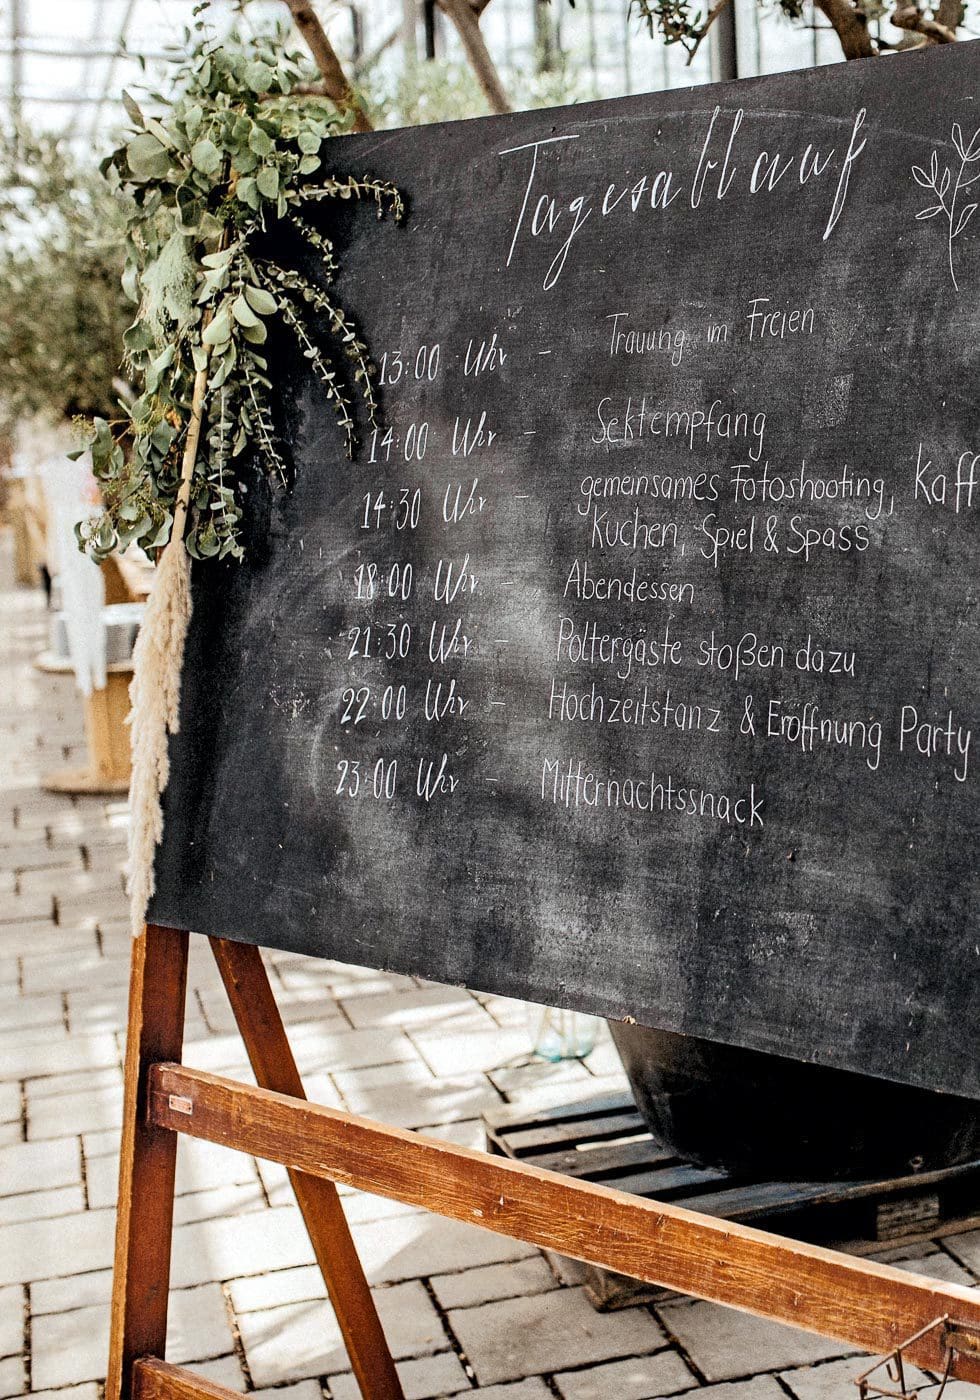 Tagesablauf
13:00 Uhr - Trauung im Freien
14:00 Uhr - Sektempfang
14:30 Uhr - gemeinsames Fotoshooting, Kaff
Kuchen, Spiel & Spass
18:00 Uhr - Abendessen
21:30 Uhr - Poltergäste stoßen dazu
22:00 Uhr - Hochzeitstanz & Eröffnung Party
23:00 Uhr - Mitternachtssnack